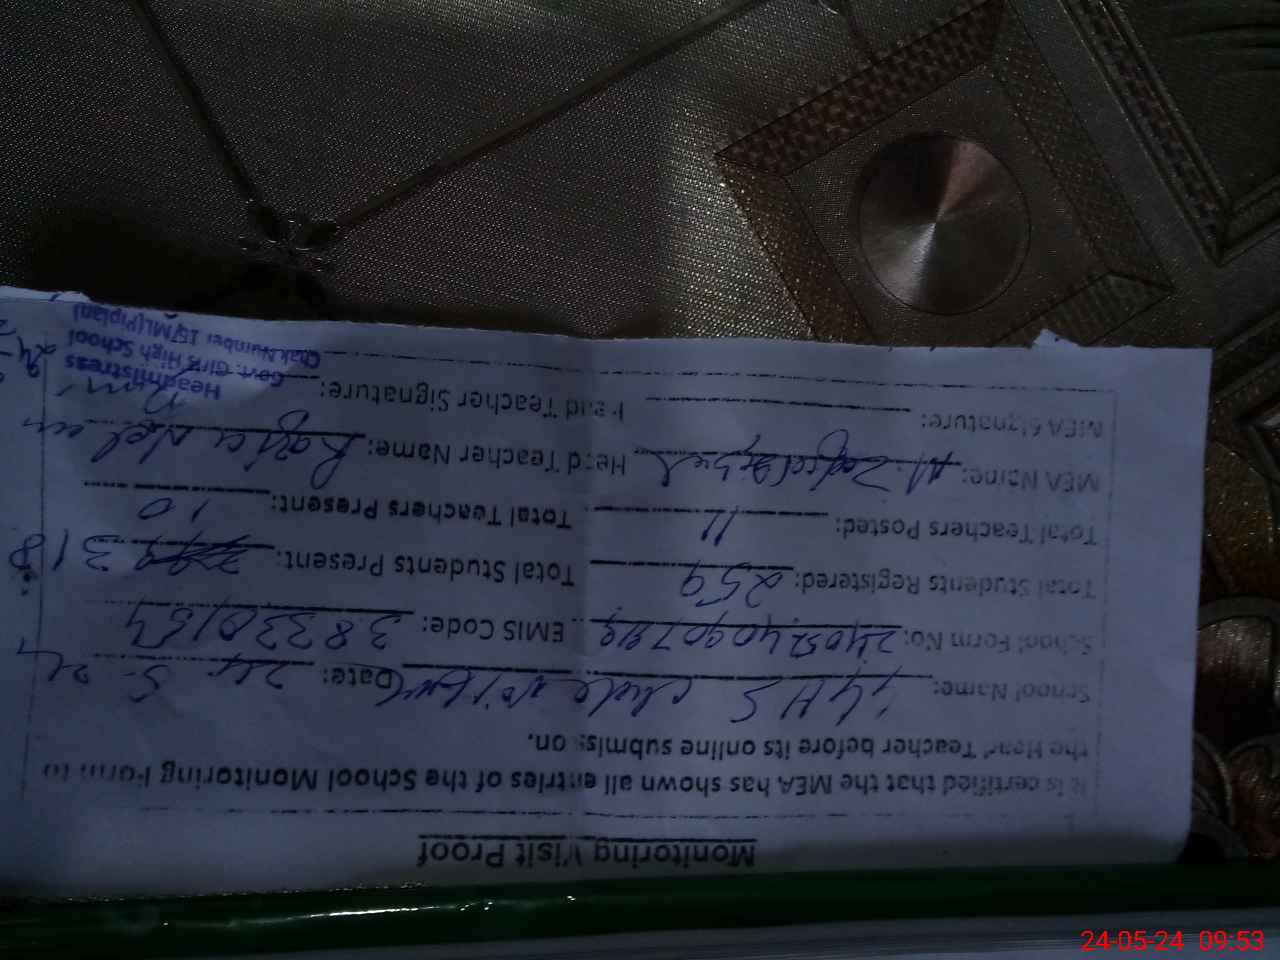 Monitoring Visit Proof
It is certified that the MEA has shown all entries of the School Monitoring Form to
the Head Teacher before its online submission.
School Name: GGHS Date: 24.5.24
School Form No: EMIS Code: 38330159
Total Students Registered: 259 Total Students Present: 318
Total Teachers Posted: 11 Total Teachers Present: 10
MEA Name: Head Teacher Name: Razia
MEA Signature: Head Teacher Signature:
Headmistress
Govt. Girls High School
Chak Number 15/ML(Piplan)
24-05-24 09:53